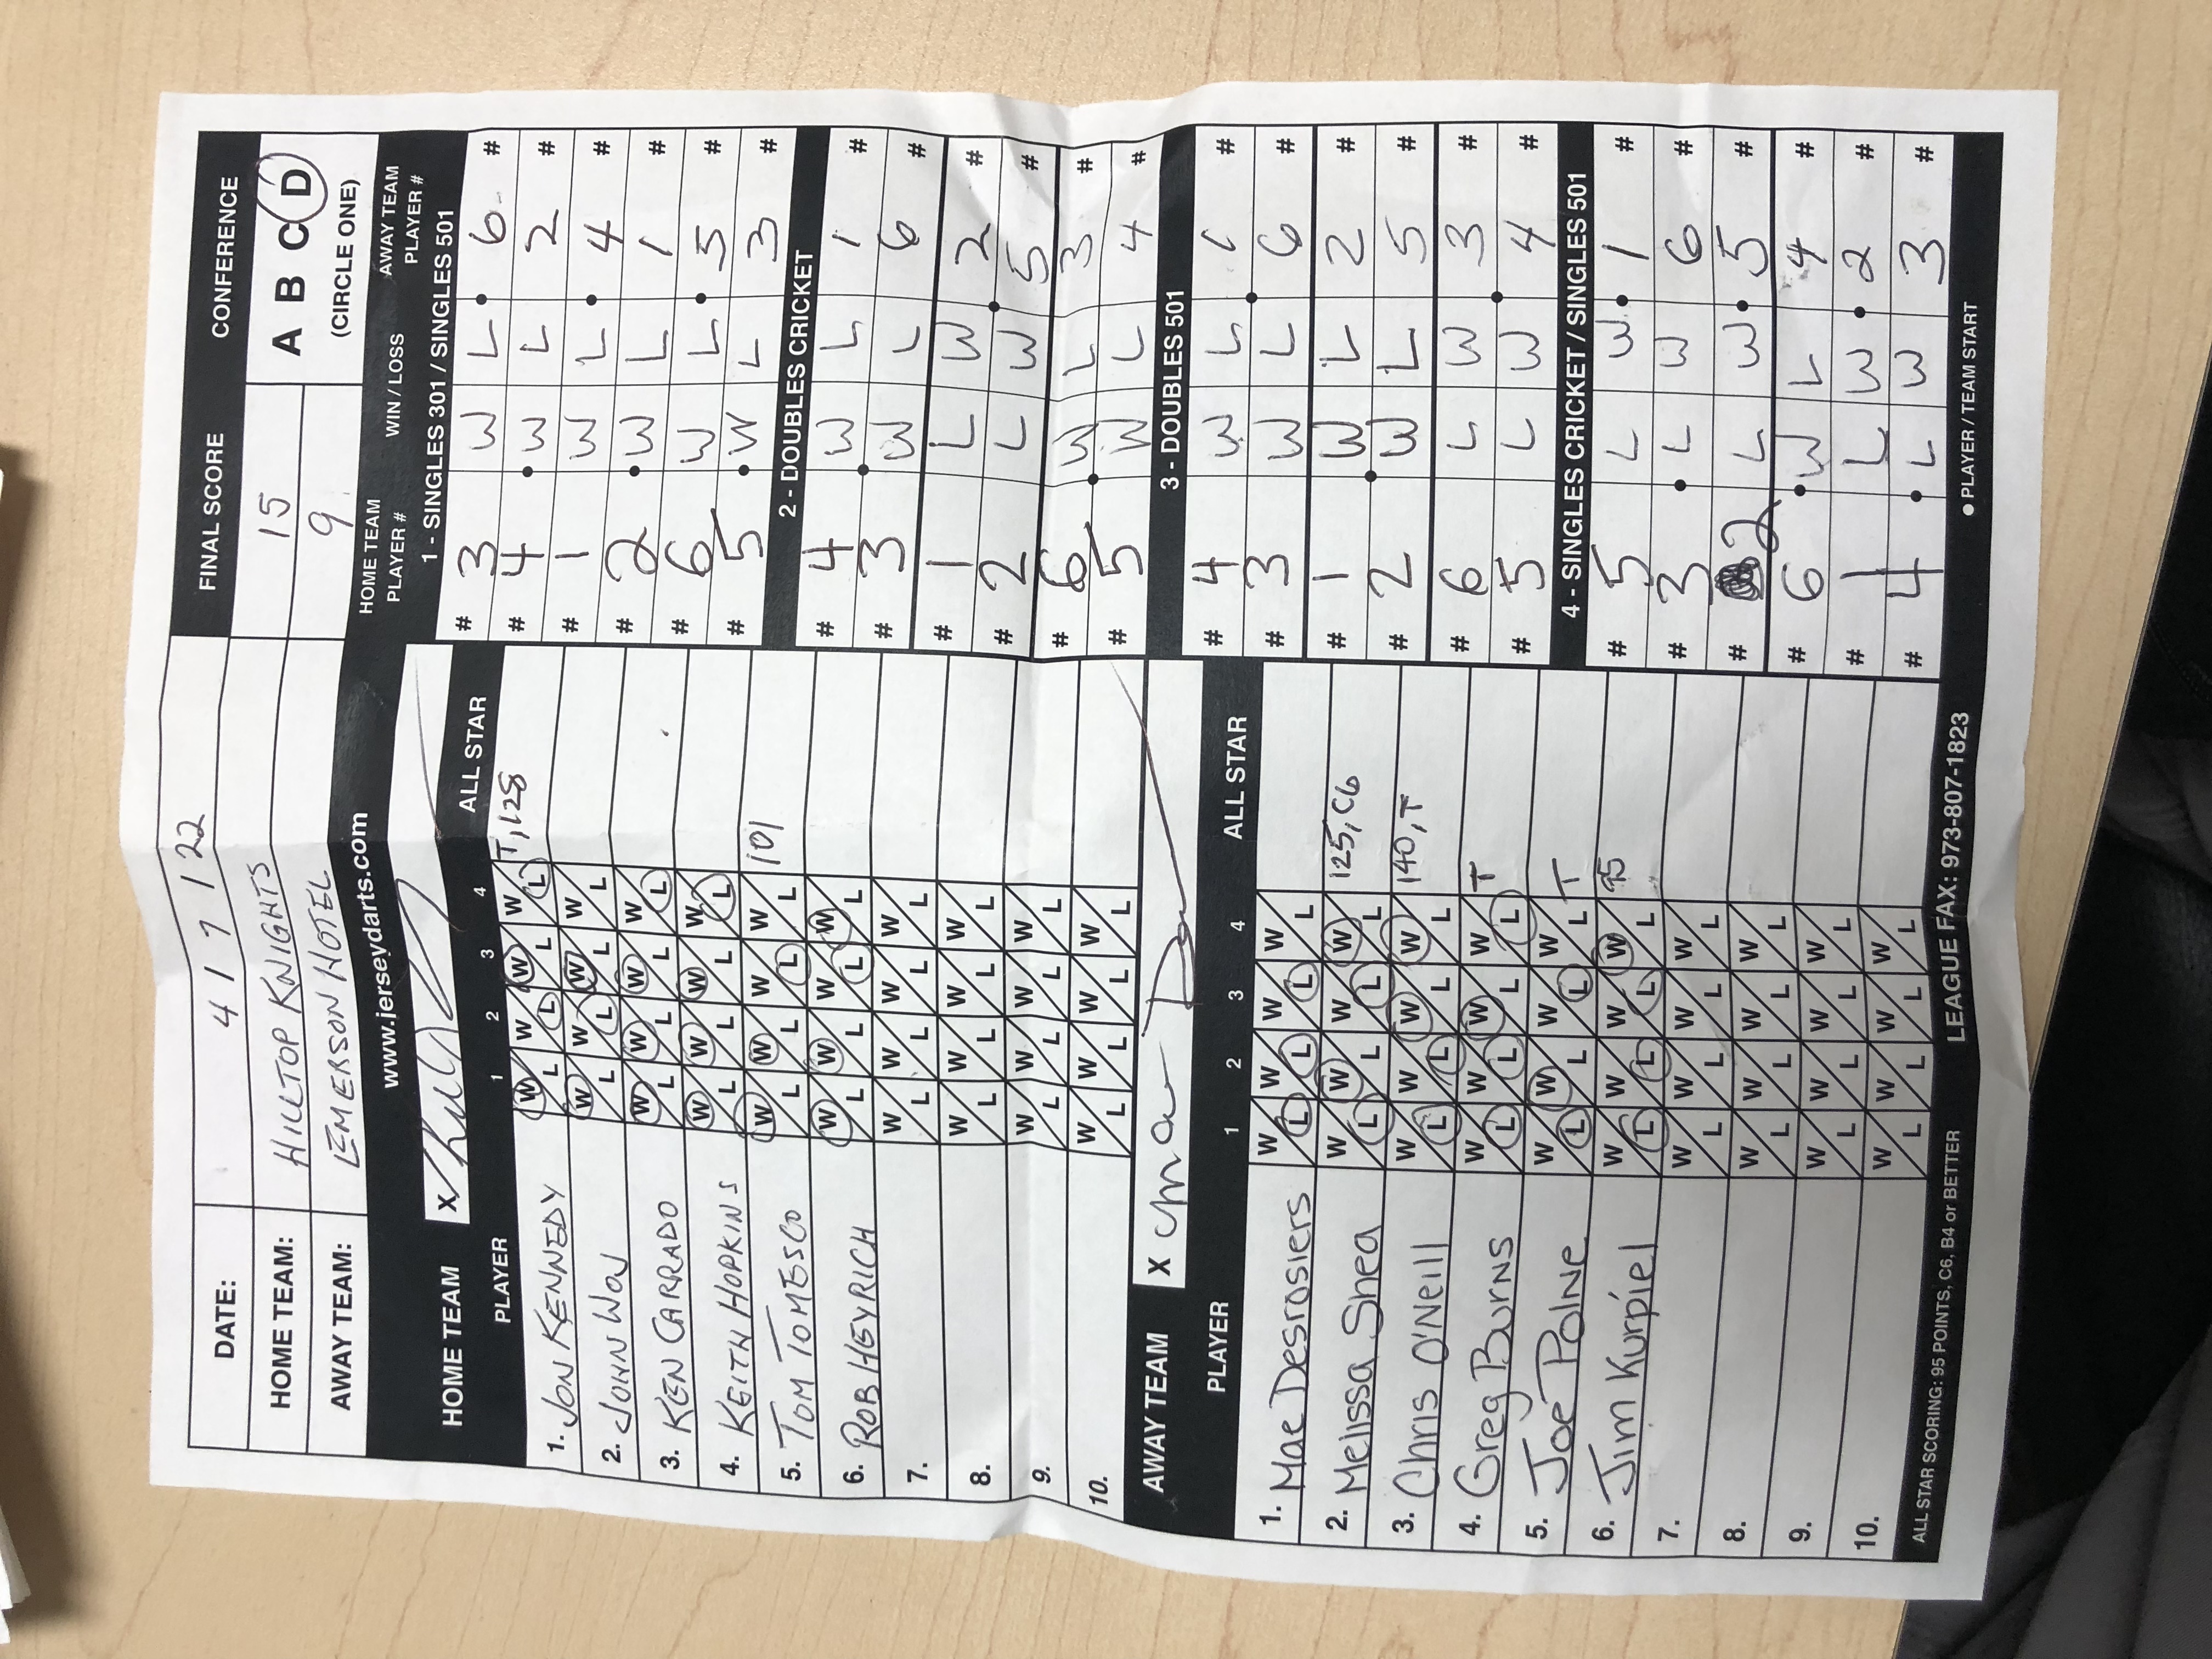 DATE: 4 / 7 / 22 FINAL SCORE CONFERENCE
HOME TEAM: HILLTOP KNIGHTS 15 A B C D
AWAY TEAM: EMERSON HOTEL 9 (CIRCLE ONE)
www.jerseydarts.com
HOME TEAM X
PLAYER 1 2 3 4 ALL STAR
1. JON KENNEDY W/L W/L W/L W/L T, 128
2. JOHN WOJ W/L W/L W/L W/L
3. KEN CARRADO W/L W/L W/L W/L
4. KEITH HOPKINS W/L W/L W/L W/L
5. TOM TOMESCO W/L W/L W/L W/L 101
6. ROB HEYRICH W/L W/L W/L W/L
7. W/L W/L W/L W/L
8. W/L W/L W/L W/L
9. W/L W/L W/L W/L
10. W/L W/L W/L W/L
AWAY TEAM X
PLAYER 1 2 3 4 ALL STAR
1. Mae Desrosiers W/L W/L W/L W/L
2. Melissa Shea W/L W/L W/L W/L 125, C6
3. Chris O'Neill W/L W/L W/L W/L 140, T
4. Greg Burns W/L W/L W/L W/L T
5. Joe Polne W/L W/L W/L W/L T
6. Jim Kurpiel W/L W/L W/L W/L 95
7. W/L W/L W/L W/L
8. W/L W/L W/L W/L
9. W/L W/L W/L W/L
10. W/L W/L W/L W/L
ALL STAR SCORING: 95 POINTS, C6, B4 or BETTER LEAGUE FAX: 973-807-1823
HOME TEAM PLAYER # WIN / LOSS AWAY TEAM PLAYER #
1 - SINGLES 301 / SINGLES 501
# 3 W L 6 #
# 4 W L 2 #
# 1 W L 4 #
# 2 W L 1 #
# 6 W L 5 #
# 5 W L 3 #
2 - DOUBLES CRICKET
# 4 W L 1 #
# 3 W L 6 #
# 1 L W 2 #
# 2 L W 5 #
# 6 W L 3 #
# 5 W L 4 #
3 - DOUBLES 501
# 4 W L 1 #
# 3 W L 6 #
# 1 W L 2 #
# 2 W L 5 #
# 6 L W 3 #
# 5 L W 4 #
4 - SINGLES CRICKET / SINGLES 501
# 5 L W 1 #
# 3 L W 6 #
# 2 L W 5 #
# 6 W L 4 #
# 1 L W 2 #
# 4 L W 3 #
● PLAYER / TEAM START